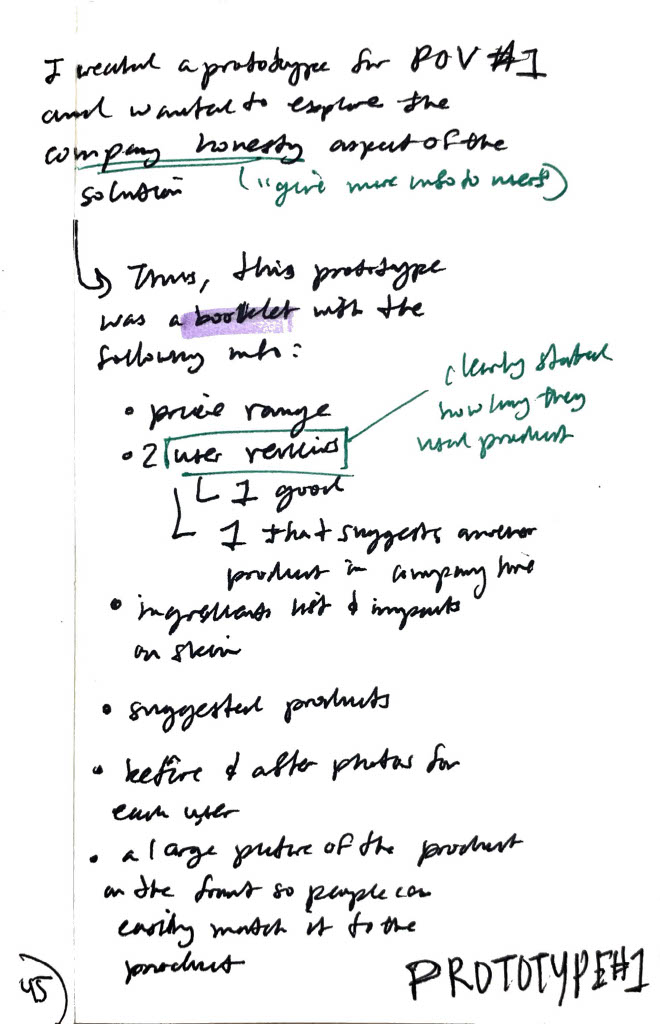 I created a prototype for POV #1
and wanted to explore the
company honesty aspect of the
solution ("give more info to users")
Thus, this prototype
was a booklet with the
following info:
• price range
• 2 user reviews
1 good
1 that suggests another
product in company line
clearly stated
how long they
used product
• ingredients list & impacts
on skin
• suggested products
• before & after photos for
each user
• a large picture of the product
on the front so people can
easily match it to the
product
45
PROTOTYPE #1